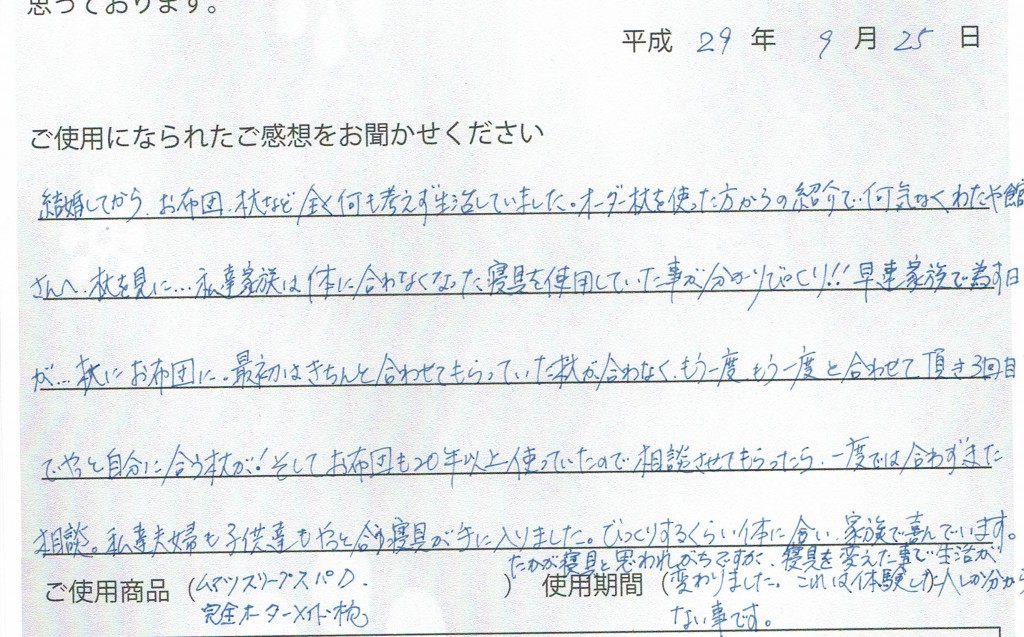 思っております。
平成 29 年 9 月 25 日
ご使用になられたご感想をお聞かせください
結婚してから、お布団、枕など全く何も考えず生活していました。オーダー枕を使った方からの紹介で何気なくわたや館
さんへ、枕を見に…私達家族は体に合わなくなった寝具を使用していた事が分かりびっくり!!早速家族で為す日
が…枕にお布団に、最初はきちんと合わせてもらっていた枕が合わなく、もう一度、もう一度と合わせて頂き3回目
でやっと自分に合う枕が!そしてお布団も20年以上使っていたので相談させてもらったら、一度では合わずまた
相談。私達夫婦も子供達もやっと合う寝具が手に入りました。びっくりするくらい体に合い、家族で喜んでいます。
たかが寝具と思われがちですが、寝具を変えた事で生活が
ご使用商品 (ムアツスリープスパD. ) 使用期間 (変わりました。これは体験した人しか分から
完全オーダーメイド枕 ない事です。